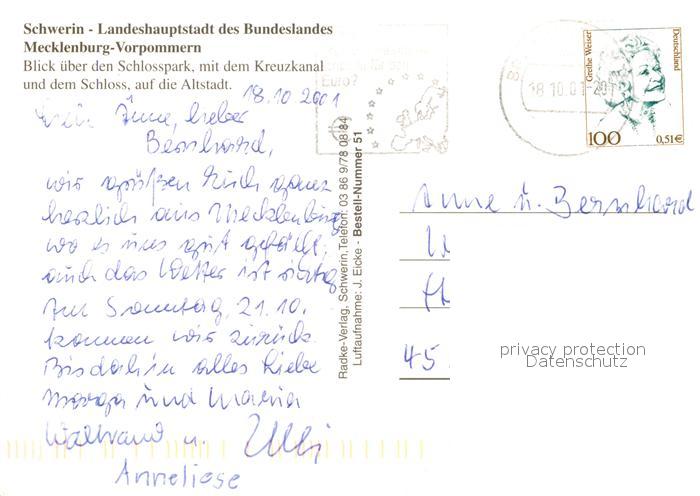 Schwerin - Landeshauptstadt des Bundeslandes
Mecklenburg-Vorpommern
Blick über den Schlosspark, mit dem Kreuzkanal
und dem Schloss, auf die Altstadt.
18.10.2001
Anne, lieber
Bernhard,
wir grüßen Euch ganz
herzlich aus Mecklenburg
wo es uns gut gefällt,
auch das Wetter ist richtig
Am Sonntag, 21.10.
kommen wir zurück.
Bis dahin alles Liebe
Marga und Maria
Waltraud u. Ulli
Anneliese
Radke-Verlag, Schwerin, Telefon: 03 86 9/78 08 84
Luftaufnahme: J. Eicke - Bestell-Nummer 51
Euro?
18.10.01-20
Grethe Weiser
Deutschland
100
0,51€
Anne u. Bernhard
45
privacy protection
Datenschutz